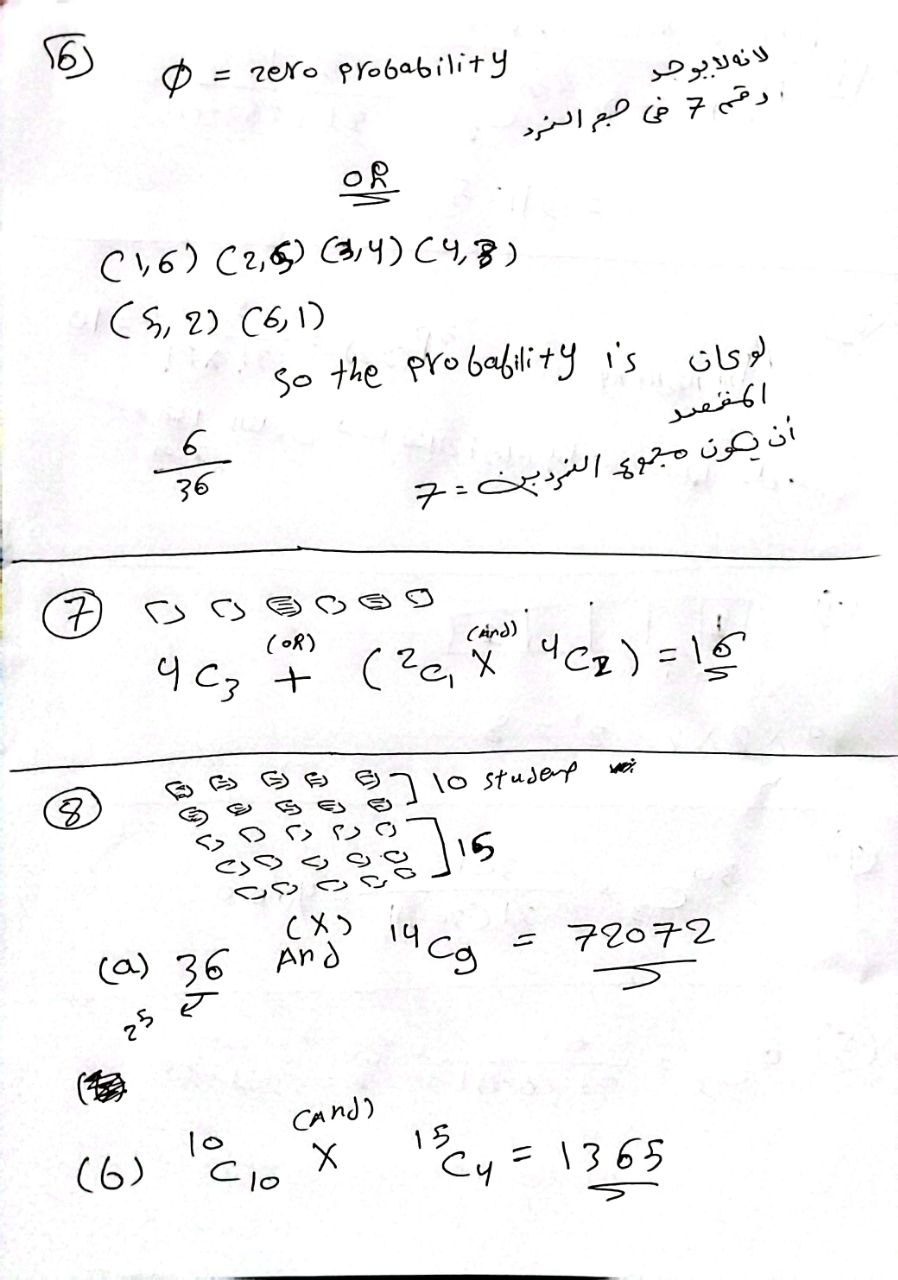 6)
ϕ = zero probability
لانه لا يوجد
رقم 7 في حجر النرد
OR
(1,6) (2,5) (3,4) (4,3)
(5,2) (6,1)
So the probability is
6/36
لو كان
المقصد
أن يكون مجموع النردين = 7
7
4C3 + (OR) (2C1 X (And) 4C2) = 16
8
10 student
15
(a) 36 (X) And 14C9 = 72072
2^5
(b) 10C10 X (And) 15C4 = 1365